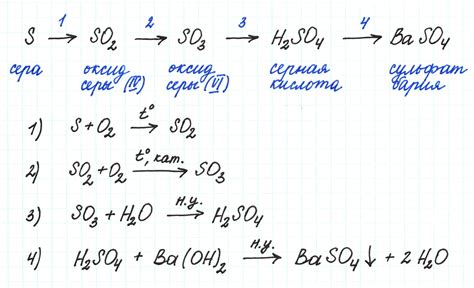 1 2 3 4
S → SO₂ → SO₃ → H₂SO₄ → BaSO₄
сера оксид серы (IV) оксид серы (VI) серная кислота сульфат бария
1) S + O₂ t° → SO₂
2) SO₂ + O₂ t°, кат. → SO₃
3) SO₃ + H₂O н.у. → H₂SO₄
4) H₂SO₄ + Ba(OH)₂ н.у. → BaSO₄↓ + 2H₂O